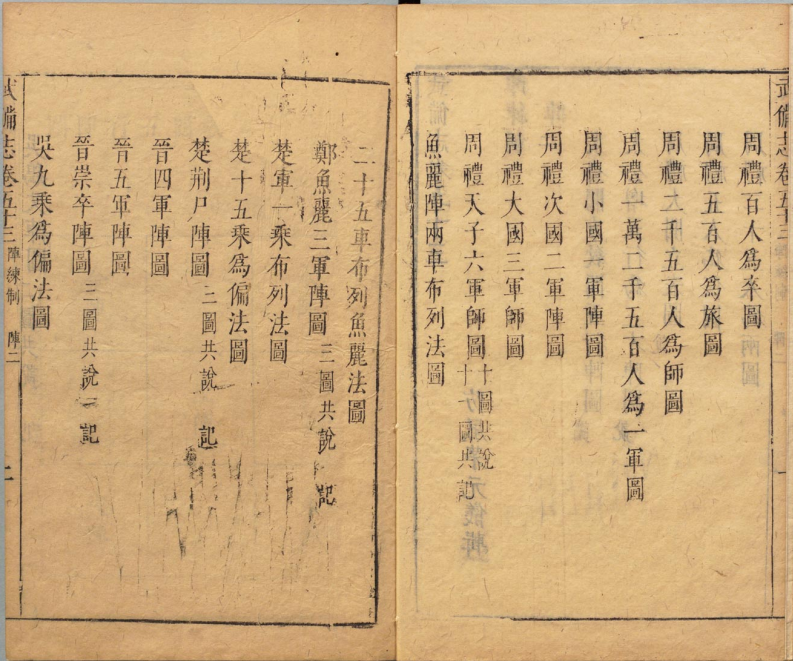 武備志卷五十三
周禮百人為卒圖
周禮五百人為旅圖
周禮二千五百人為師圖
周禮一萬二千五百人為一軍圖
周禮小國一軍陣圖
周禮次國二軍陣圖
周禮大國三軍師圖
周禮天子六軍師圖 十圖共說 十圖共記
魚麗陣兩車布列法圖
二十五車布列魚麗法圖
鄭魚麗三軍陣圖 三圖共說 記
楚軍一乘布列法圖
楚十五乘為偏法圖
楚荆尸陣圖 三圖共說 記
晉四軍陣圖
晉五軍陣圖
晉崇卒陣圖 三圖共說 記
吳九乘為偏法圖
武備志卷五十三 陣練制 陣二 二